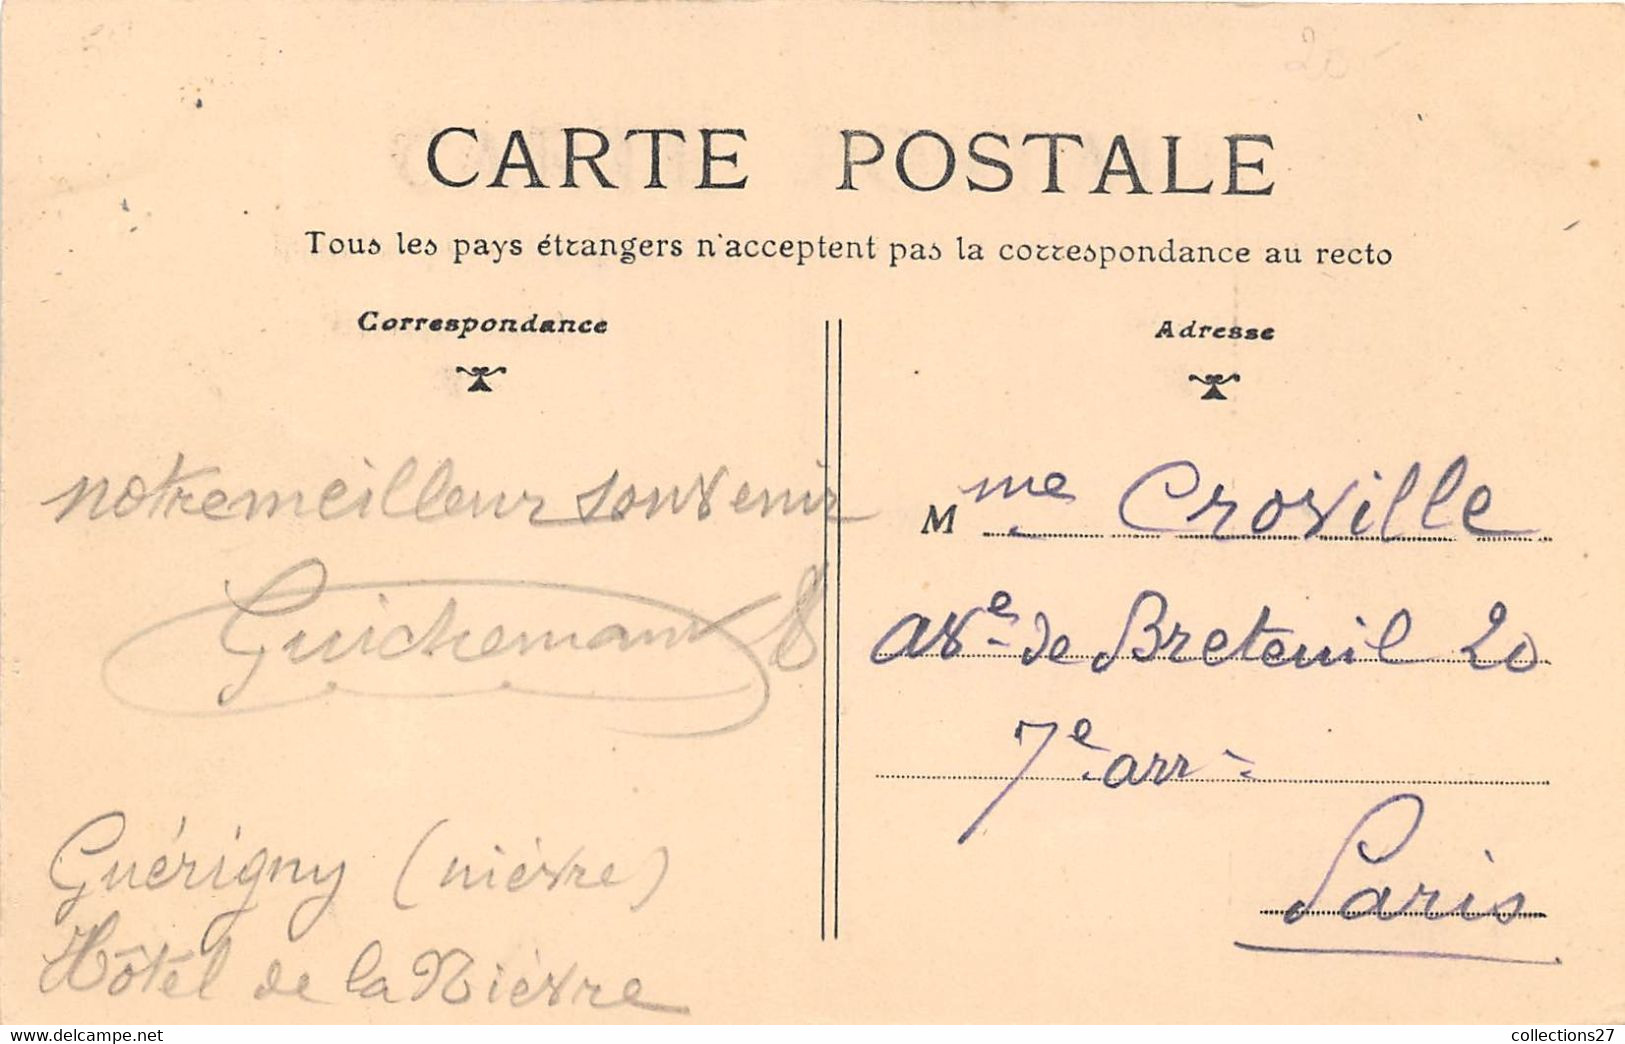 20
CARTE POSTALE
Tous les pays étrangers n'acceptent pas la correspondance au recto
Correspondance
notre meilleur souvenir
Guérigny (nièvre)
Hôtel de la Nièvre
Adresse
Mme Croville
Ave de Breteuil 20
7e arr
Paris
delcampe.net
collections27